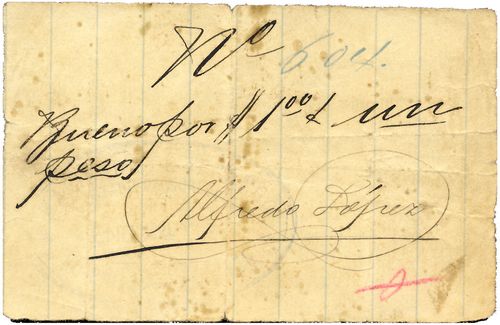 Nº 604.
Bueno por $1.00 ȼ un
peso
Alfredo López